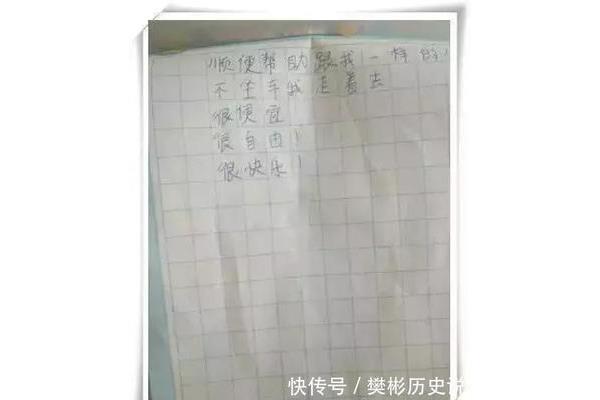 顺便帮助跟我一样的
不坐车我走着去
很便宜
很自由！
很快乐！
快传号/樊彬历史说